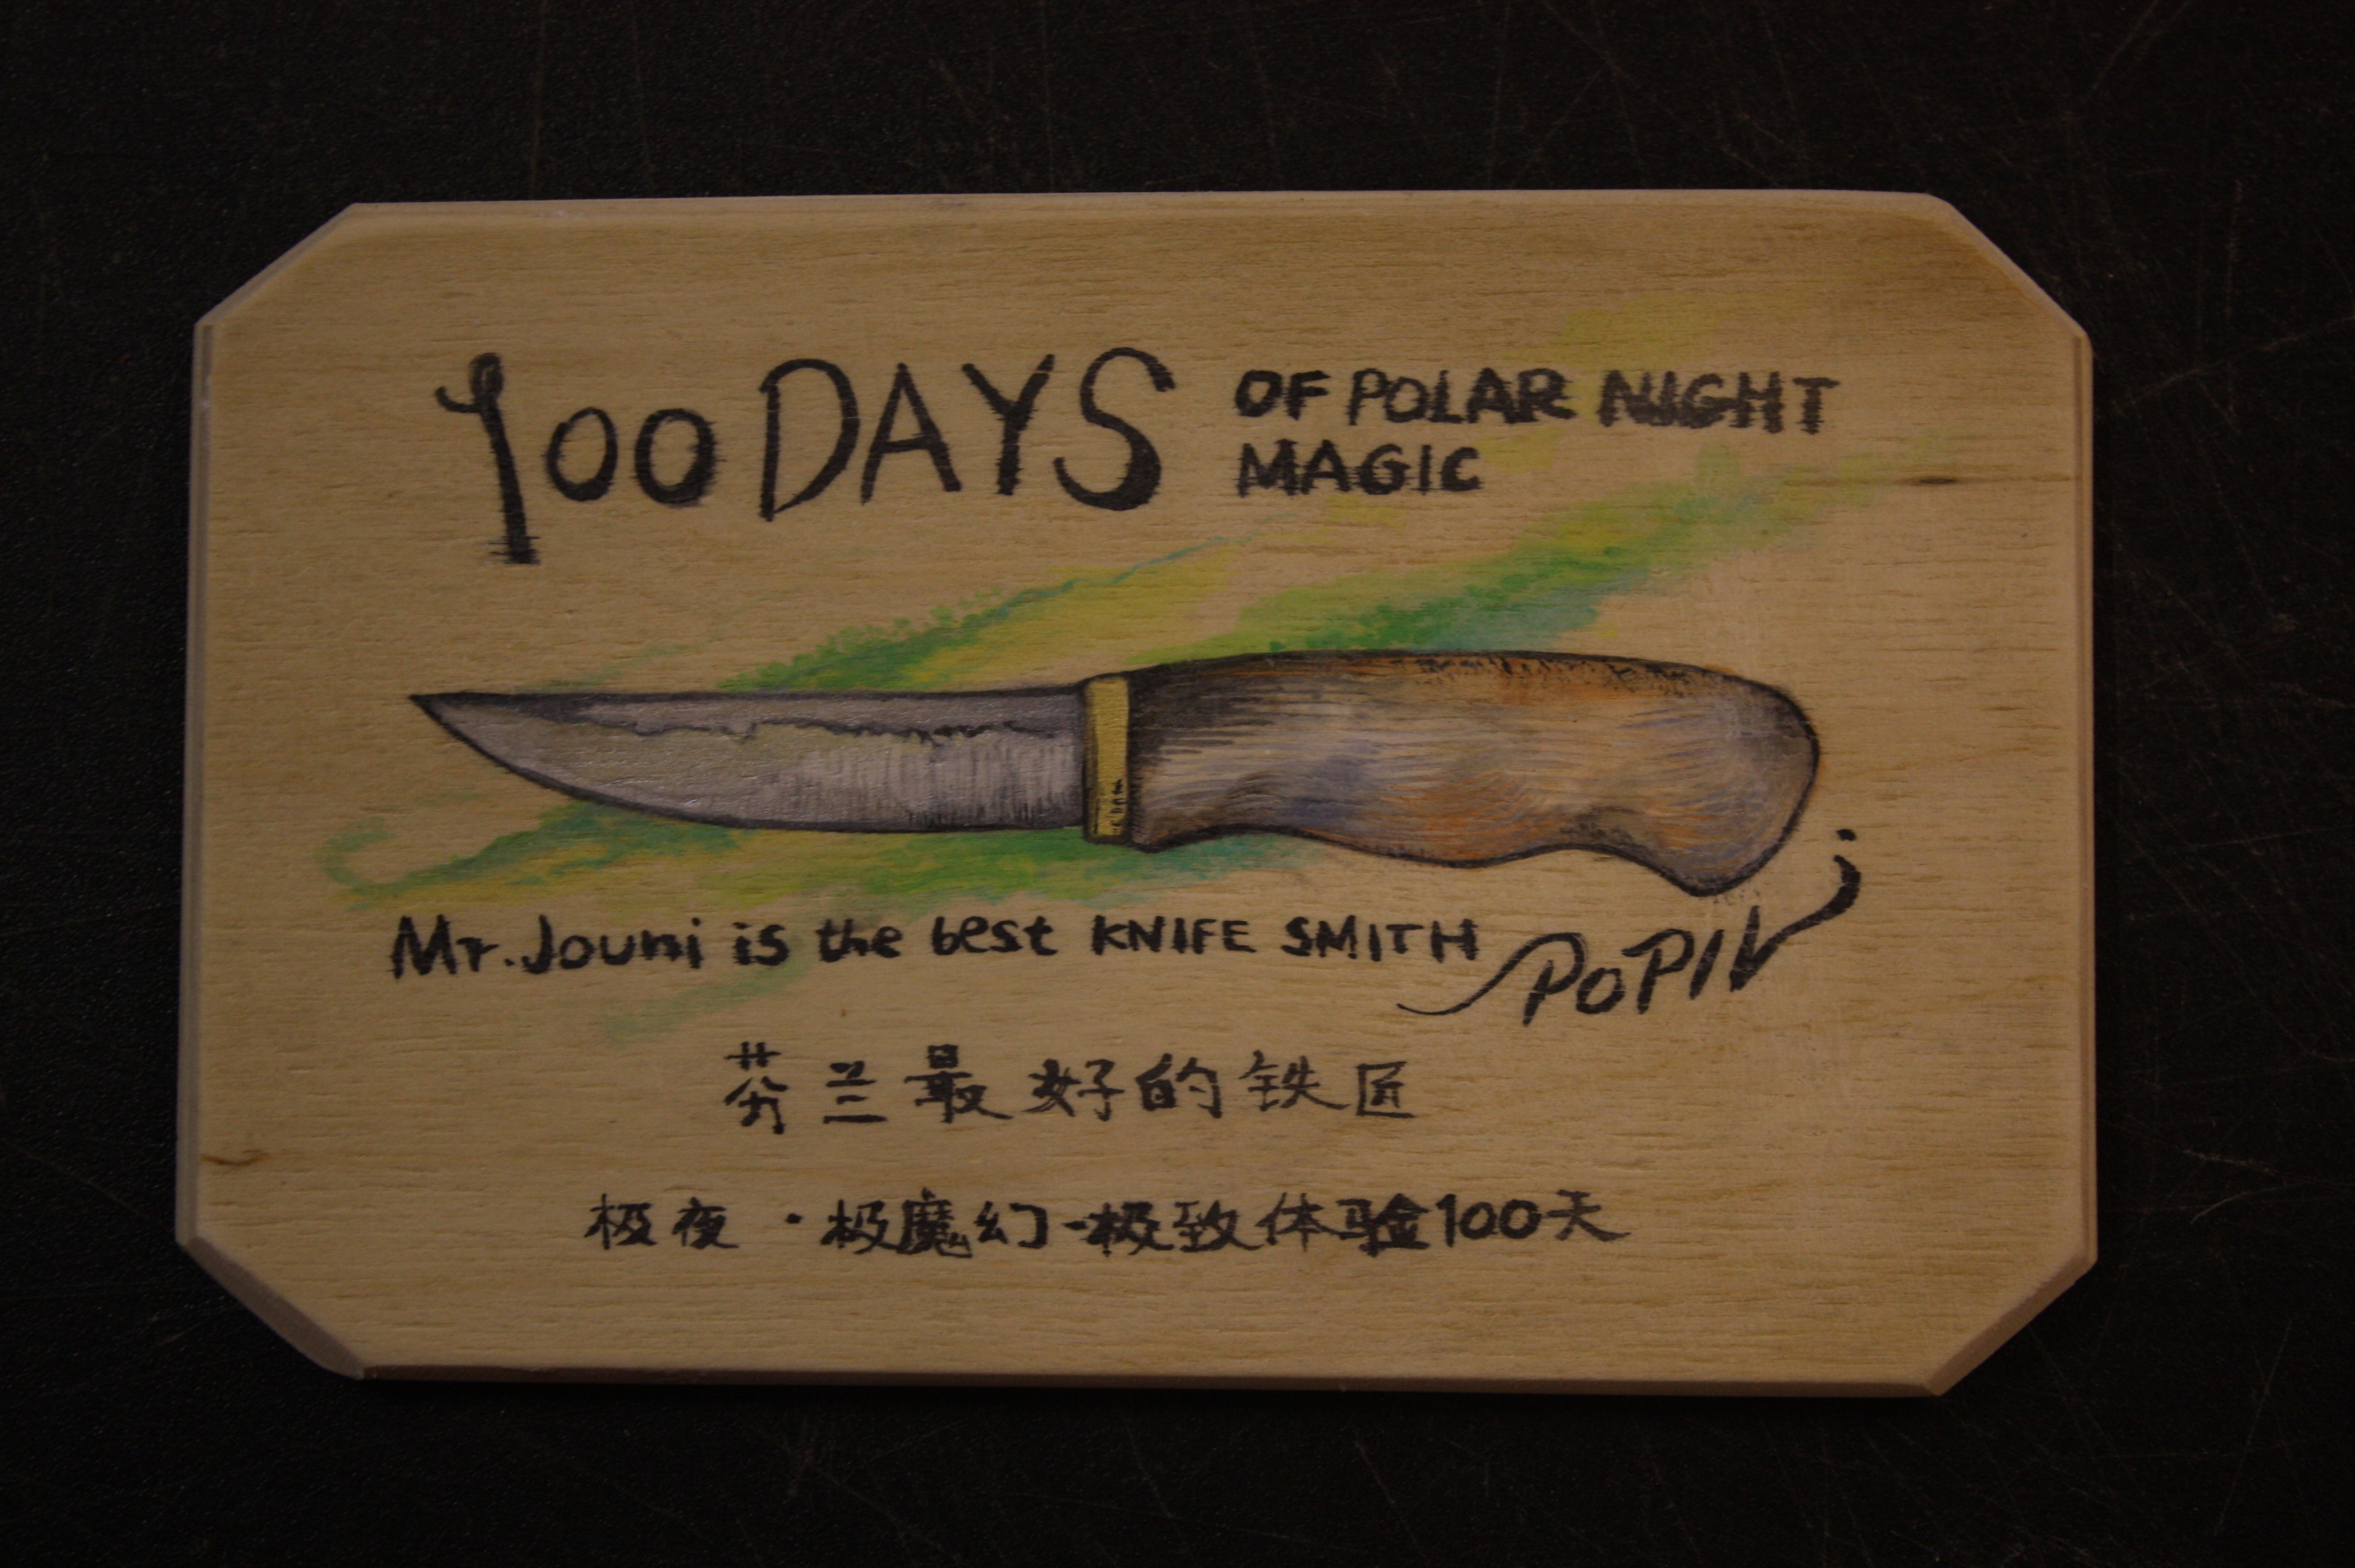 100 DAYS OF POLAR NIGHT
MAGIC
Mr. Jouni is the best KNIFE SMITH
POPIN
芬兰最好的铁匠
极夜·极魔幻·极致体验100天